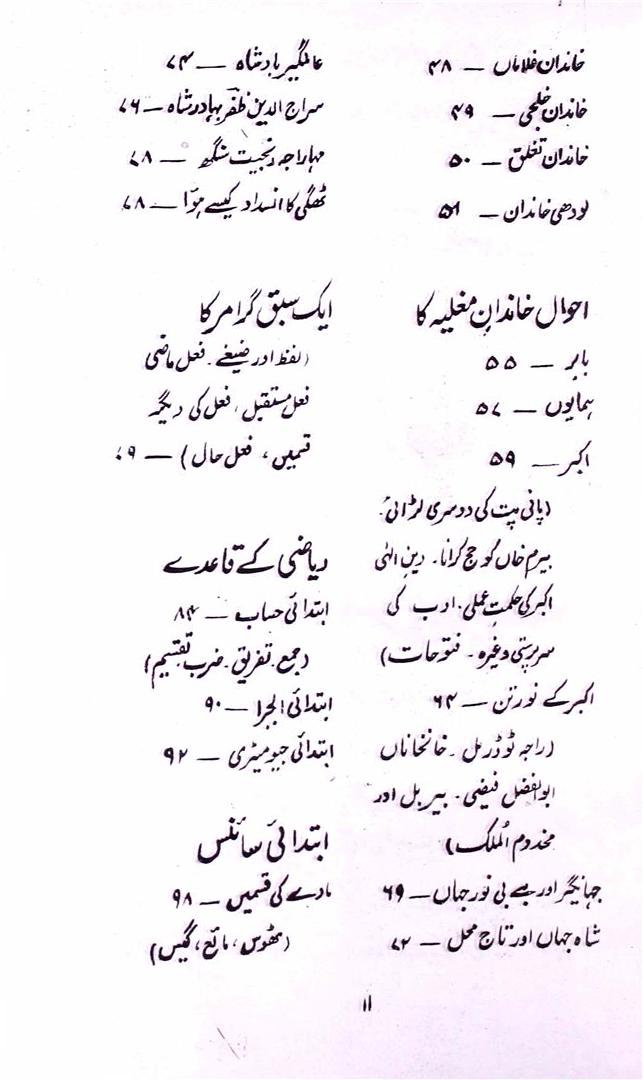 خاندان غلاماں — ۴۸
خاندان خلجی — ۴۹
خاندان تغلق — ۵۰
لودھی خاندان — ۵۱
احوال خاندانِ مغلیہ کا
بابر — ۵۵
ہمایوں — ۵۷
اکبر — ۵۹
(پانی پت کی دوسری لڑائی۔
بیرم خاں کو حج کرانا۔ دینِ الٰہی
اکبر کی حکمتِ عملی۔ ادب کی
سرپرستی وغیرہ۔ فتوحات)
اکبر کے نورتن — ۶۴
(راجہ ٹوڈرمل۔ خانخاناں
ابوالفضل فیضی۔ بیربل اور
مخدوم الملک)
جہانگیر اور بے بی نورجہاں — ۶۹
شاہ جہاں اور تاج محل — ۷۲
عالمگیر بادشاہ — ۷۴
سراج الدین ظفر بہادر شاہ — ۷۶
مہاراجہ رنجیت سنگھ — ۷۸
ٹھگی کا انسداد کیسے ہوا — ۷۸
ایک سبق گرامر کا
(لفظ اور صیغے۔ فعل ماضی
فعل مستقبل، فعل کی دیگر
قسمیں، فعل حال) — ۷۹
ریاضی کے قاعدے
ابتدائی حساب — ۸۴
(جمع۔ تفریق۔ ضرب تقسیم)
ابتدائی الجبرا — ۹۰
ابتدائی جیومیٹری — ۹۲
ابتدائی سائنس
مادے کی قسمیں — ۹۸
(ٹھوس، مائع، گیس)
۱۱